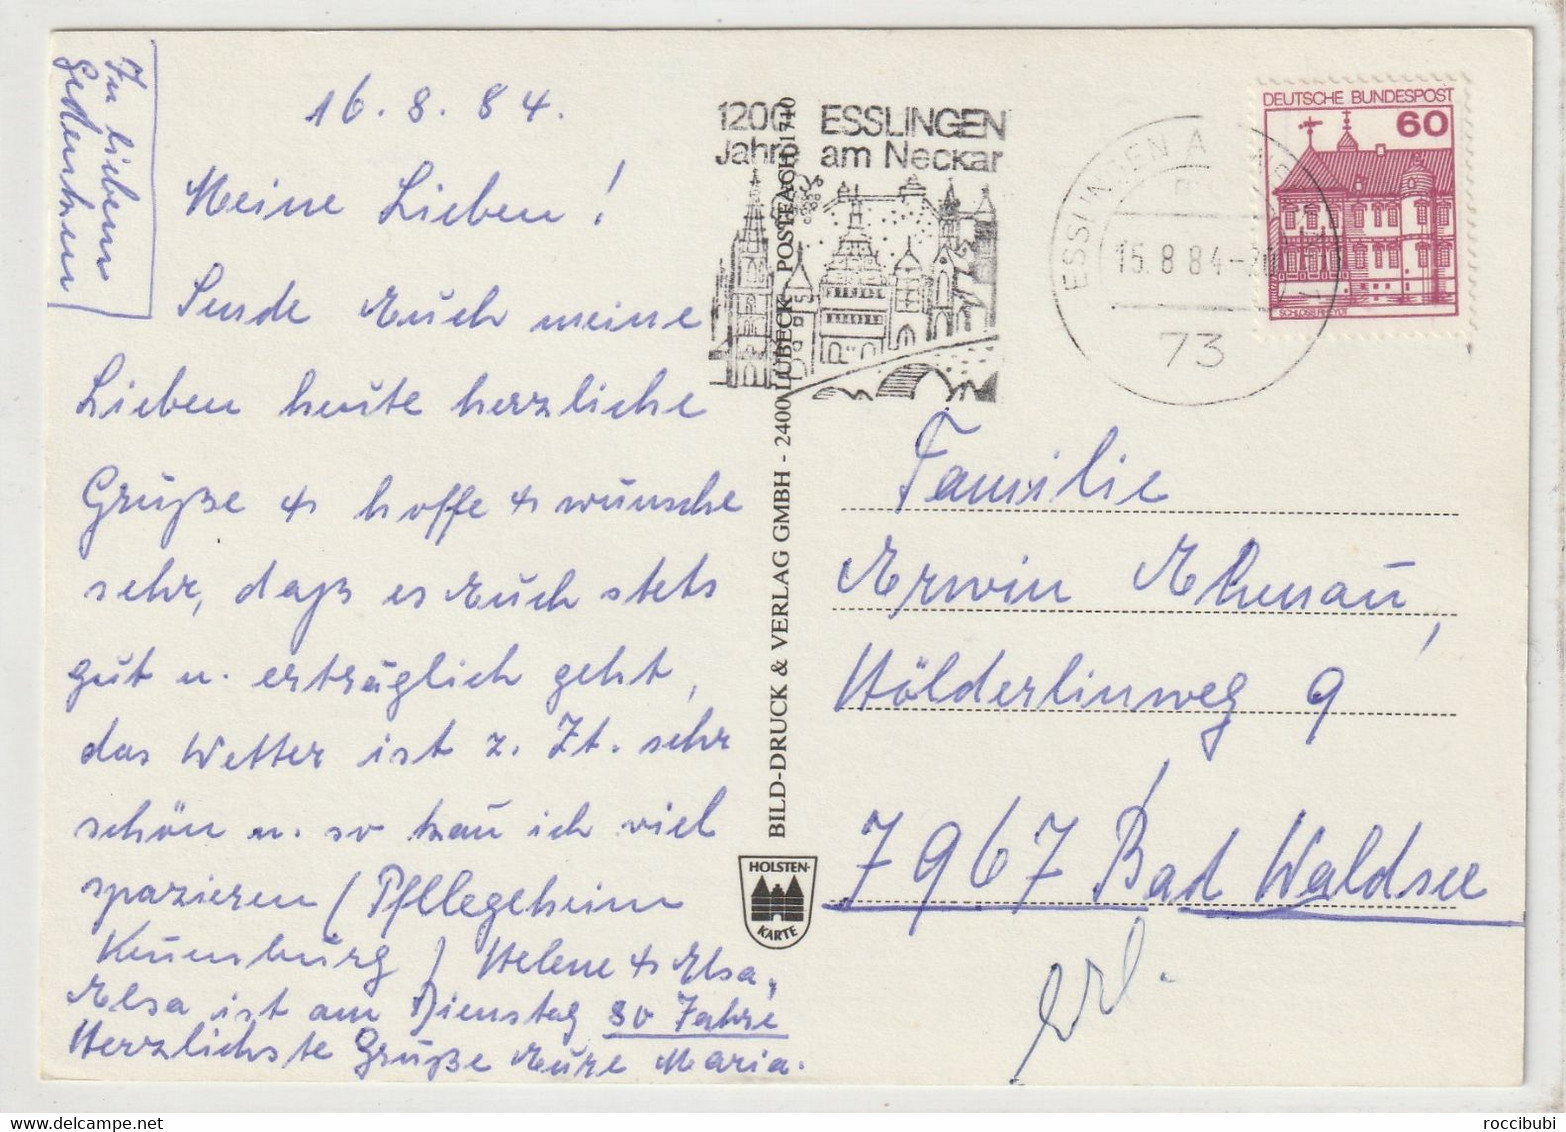 In liebem
Gedenken
16.8.84.
Meine Lieben!
Sende Euch meine
Lieben heute herzliche
Grüße + hoffe + wünsche
sehr, daß es Euch stets
gut u. erträglich geht,
das Wetter ist z. Zt. sehr
schön u. so kau ich viel
spazieren (Pfllegeheim
Kennenburg) Helene + Elsa,
Elsa ist am Dienstag 80 Jahre
Herzlichste Grüße Eure Maria.
1200 ESSLINGEN
Jahre am Neckar
BILD-DRUCK & VERLAG GMBH - 2400 LÜBECK POSTFACH 1710
HOLSTEN-
KARTE
ESSLINGEN A
15.8.84-20
73
DEUTSCHE BUNDESPOST
60
Familie
Erwin Ehenau,
Hölderlinweg 9
7967 Bad Waldsee
erl.
roccibubi